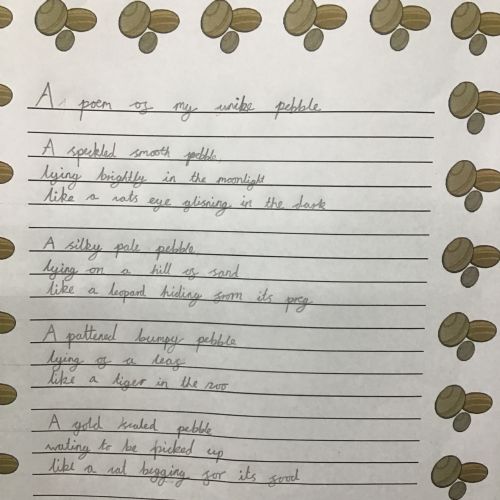 A poem of my unike pebble
A speckled smooth pebble,
lying brightly in the moonlight
like a rats eye glisning in the dark
A silky pale pebble
lying on a hill of sand
like a leopard hiding from its prey
A pattened bumpy pebble
lying of a leaf
like a tiger in the zoo
A gold pebble
wating to be picked up
like a rat begging for its food